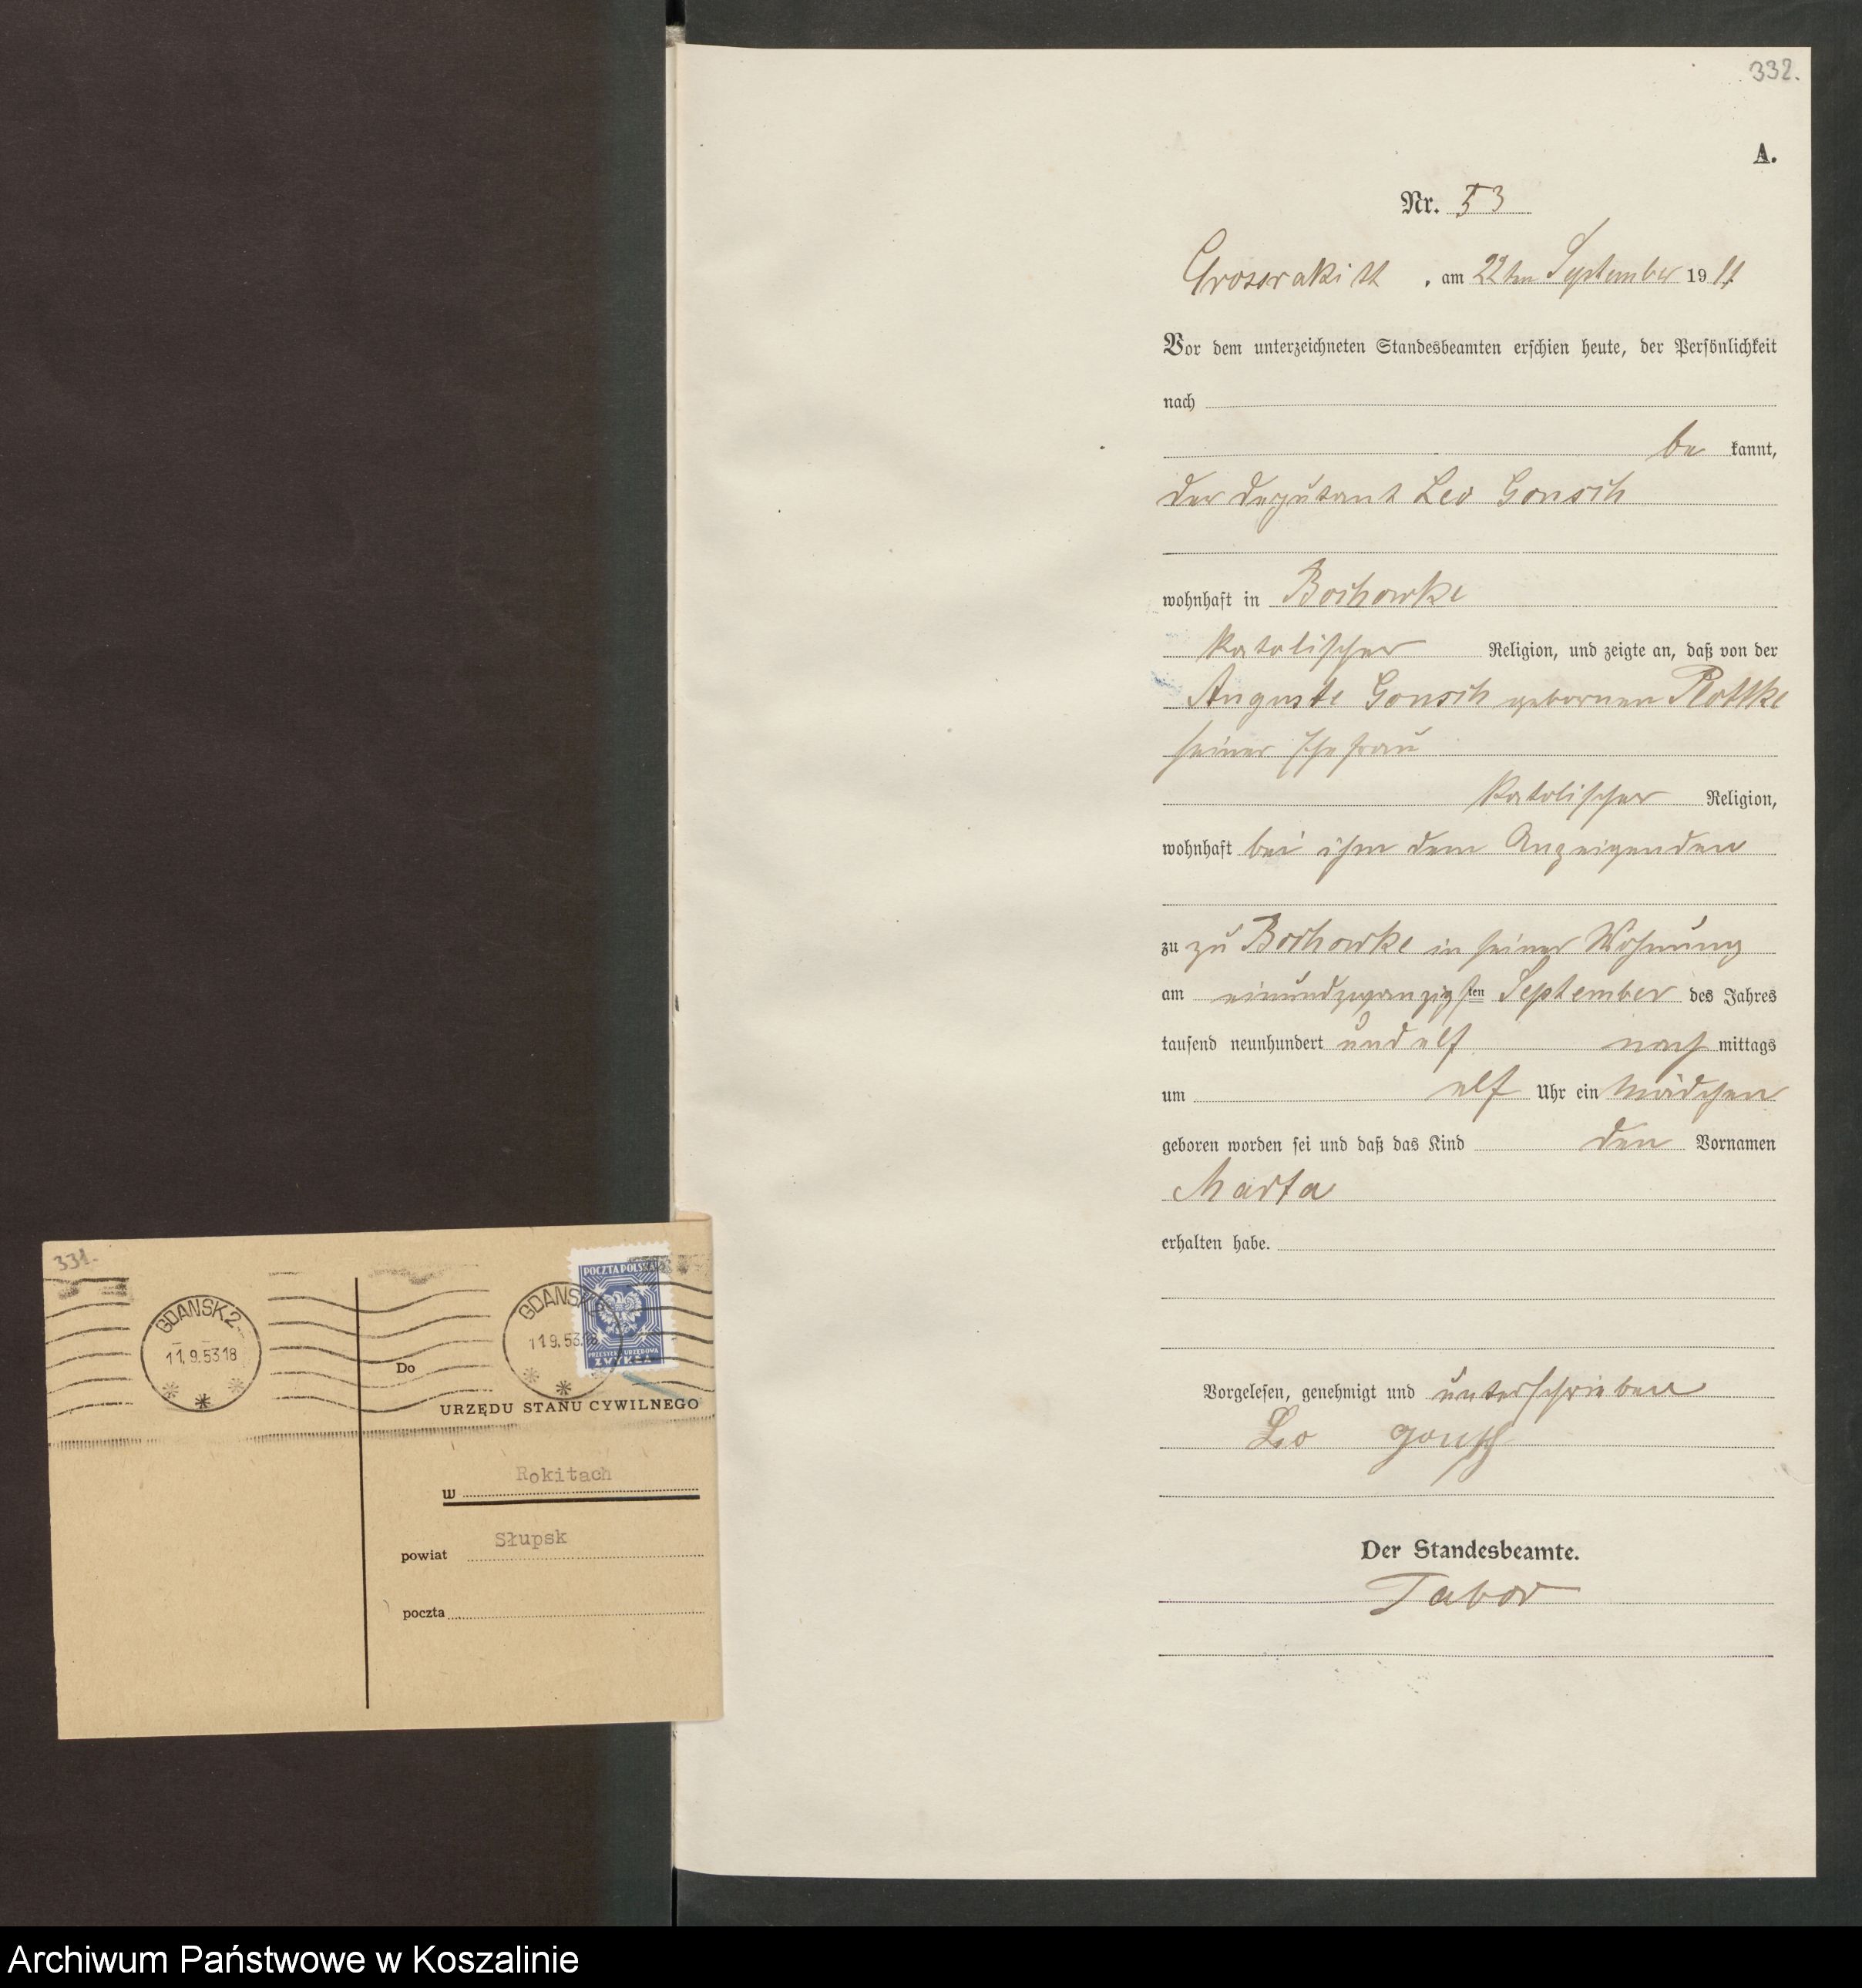 332.
A.
Nr. 53
Grossrakitt, am 22ten September 1911
Vor dem unterzeichneten Standesbeamten erschien heute, der Persönlichkeit
nach
be kannt,
der Deputant Leo Gonsch
wohnhaft in Bochowke
katolischer Religion, und zeigte an, daß von der
Auguste Gonsch gebornen Plottke
seiner Ehefrau
katolischer Religion,
wohnhaft bei ihm dem Anzeigenden
zu zu Bochowke in seiner Wohnung
am einundzwanzigsten September des Jahres
tausend neunhundert und elf nach mittags
um elf Uhr ein Mädchen
geboren worden sei und daß das Kind den Vornamen
Marta
erhalten habe.
Vorgelesen, genehmigt und unterschrieben
Leo Gonsch
Der Standesbeamte.
Tabor
331.
GDANSK 2
11.9.53.18
GDANSK 2
11.9.53.18
POCZTA POLSKA
PRZESYŁKA URZĘDOWA
ZWYKŁA
Do
URZĘDU STANU CYWILNEGO
w Rokitach
powiat Słupsk
poczta
Archiwum Państwowe w Koszalinie